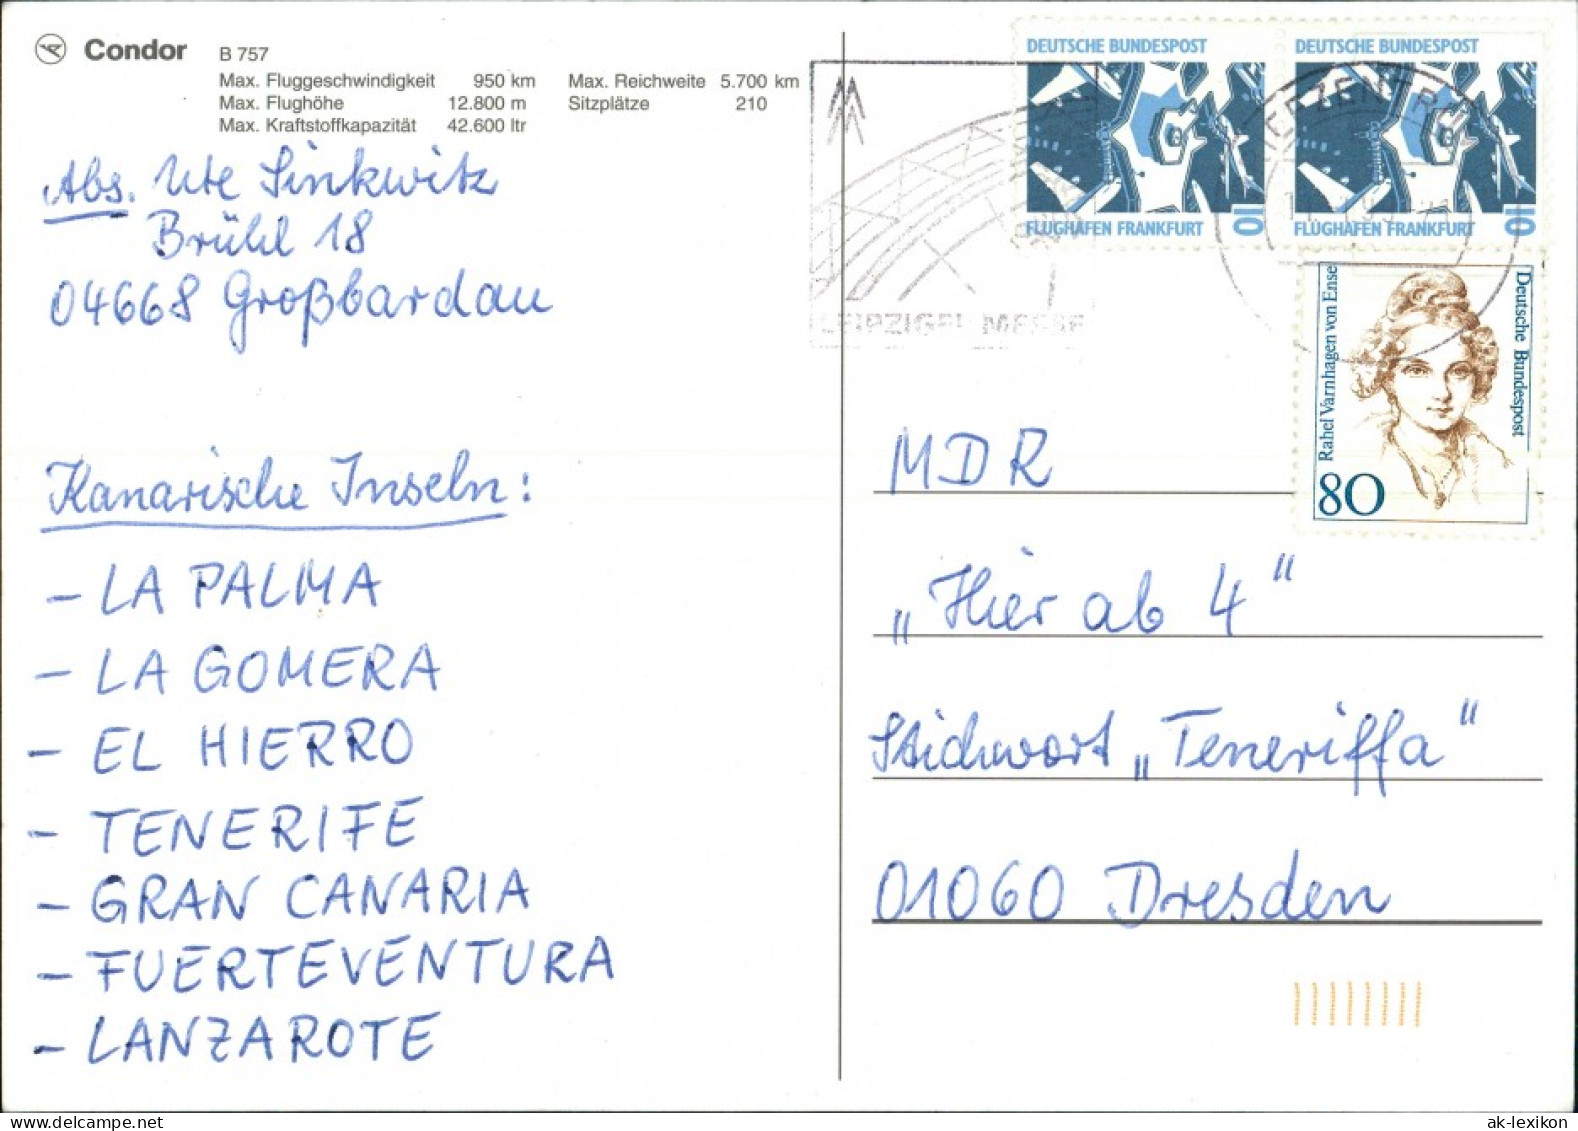 Condor B 757
Max. Fluggeschwindigkeit 950 km Max. Reichweite 5.700 km
Max. Flughöhe 12.800 m Sitzplätze 210
Max. Kraftstoffkapazität 42.600 ltr
Abs. Ute Sinkwitz
Brühl 18
04668 Großbardau
Kanarische Inseln:
- LA PALMA
- LA GOMERA
- EL HIERRO
- TENERIFE
- GRAN CANARIA
- FUERTEVENTURA
- LANZAROTE
DEUTSCHE BUNDESPOST
FLUGHAFEN FRANKFURT
10
DEUTSCHE BUNDESPOST
FLUGHAFEN FRANKFURT
10
LEIPZIGER MESSE
Rahel Varnhagen von Ense
Deutsche Bundespost
80
MDR
„Hier ab 4"
Stichwort „Teneriffa"
01060 Dresden
ak-lexikon